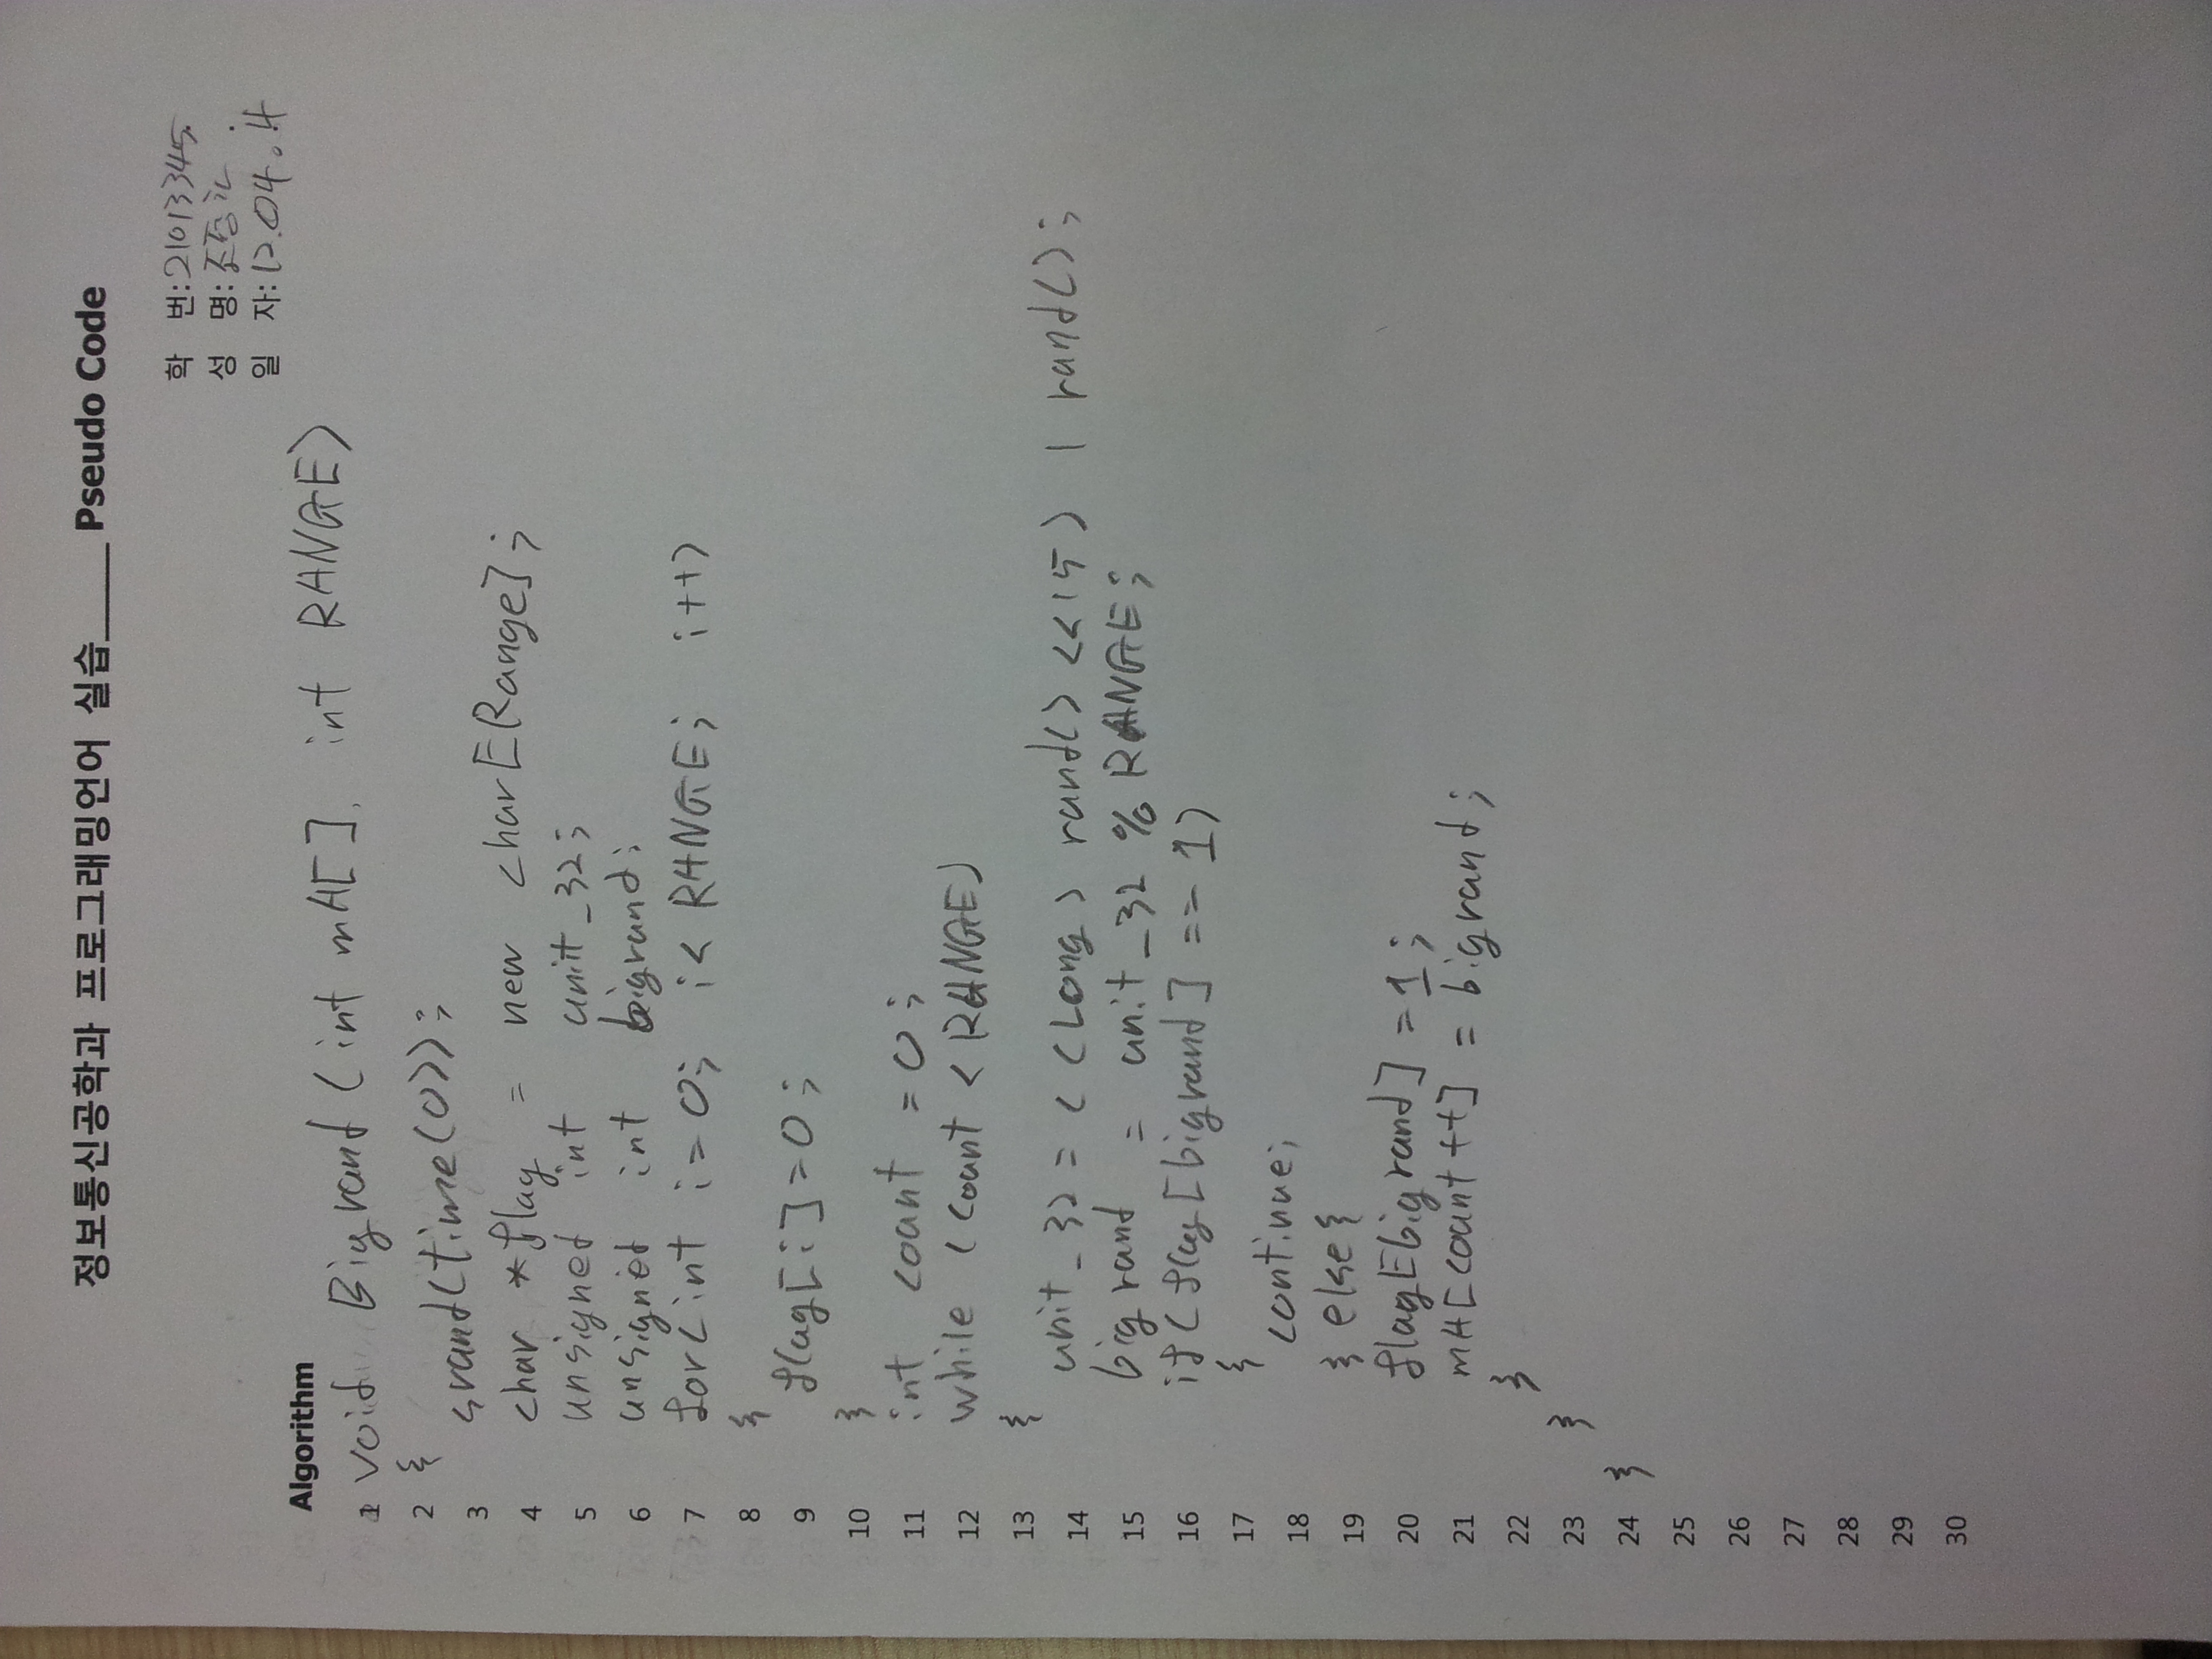 정보통신공학과 프로그래밍언어 실습______ Pseudo Code
학 번: 21013345
성 명:
일 자: 12.04.
Algorithm
1 void Bigrand (int mA[], int RANGE)
2 {
3 srand(time(0));
4 char *flag = new char[Range];
5 unsigned int unit_32;
6 unsigned int bigrand;
7 for(int i=0; i< RANGE; i++)
8 {
9 flag[i]=0;
10 }
11 int count =0;
12 while (count < RANGE)
13 {
14 unit_32 = ((long) rand() <<15) | rand();
15 bigrand = unit_32 % RANGE;
16 if(flag[bigrand] == 1)
17 {
18 continue;
19 } else{
20 flag[bigrand] =1;
21 mA[count++] = bigrand;
22 }
23 }
24 }
25
26
27
28
29
30